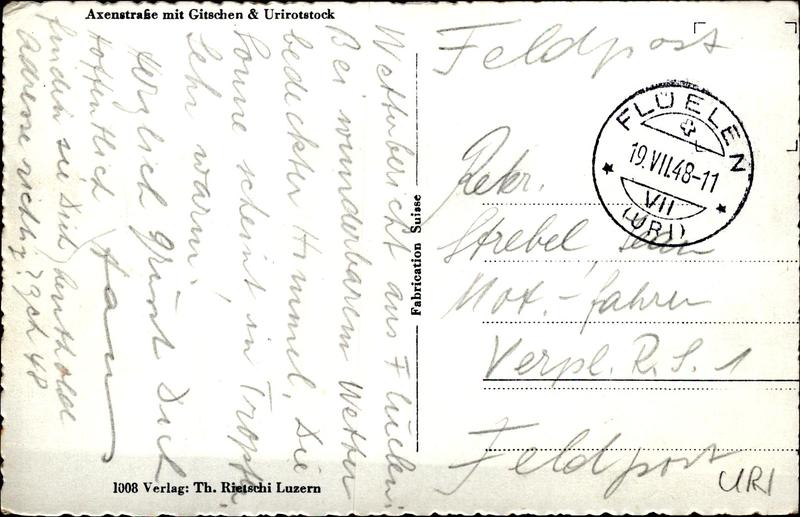 Axenstraße mit Gitschen & Urirotstock
Wetterbericht aus Flüelen:
Bei wunderbarem Wetter
bedeckter Himmel. Die
Sonne scheint in Tropfen.
Sehr warm!
Herzlich grüsst Dich
Hoffentlich
finden sie Dich
Adresse richtig?
1008 Verlag: Th. Rietschi Luzern
Fabrication Suisse
Feldpost
FLÜELEN
19.VII.48-11
VII
(URI)
Rekr.
Strebel
Mot.-fahrer
Verpl. R.S. 1
Feldpost
URI